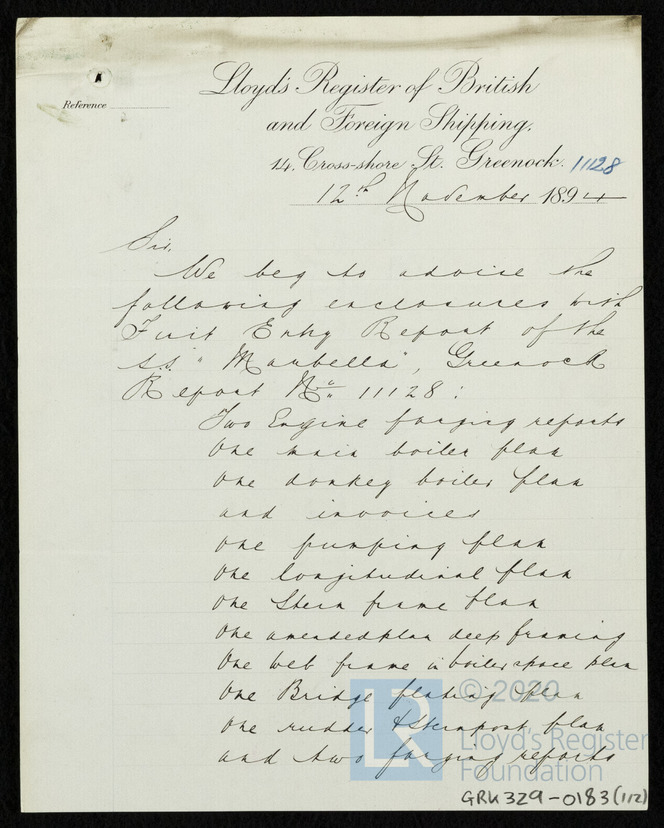 Reference
Lloyd's Register of British
and Foreign Shipping.
14, Cross-shore St. Greenock. 11128
12th November 1894
Sir,
We beg to advise the
following enclosures with
First Entry Report of the
s.s. "Marbella", Greenock
Report No. 11128:
Two Engine forging reports
One main boiler plan
One donkey boiler plan
and invoices
One pumping plan
One longitudinal plan
One Stern frame plan
One amended plan deep framing
One web frame in boiler space plan
One Bridge plan
One rudder & Sternpost plan
and two forging reports
© 2020
LR
Lloyd's Register
Foundation
GRK329-0183(1/2)